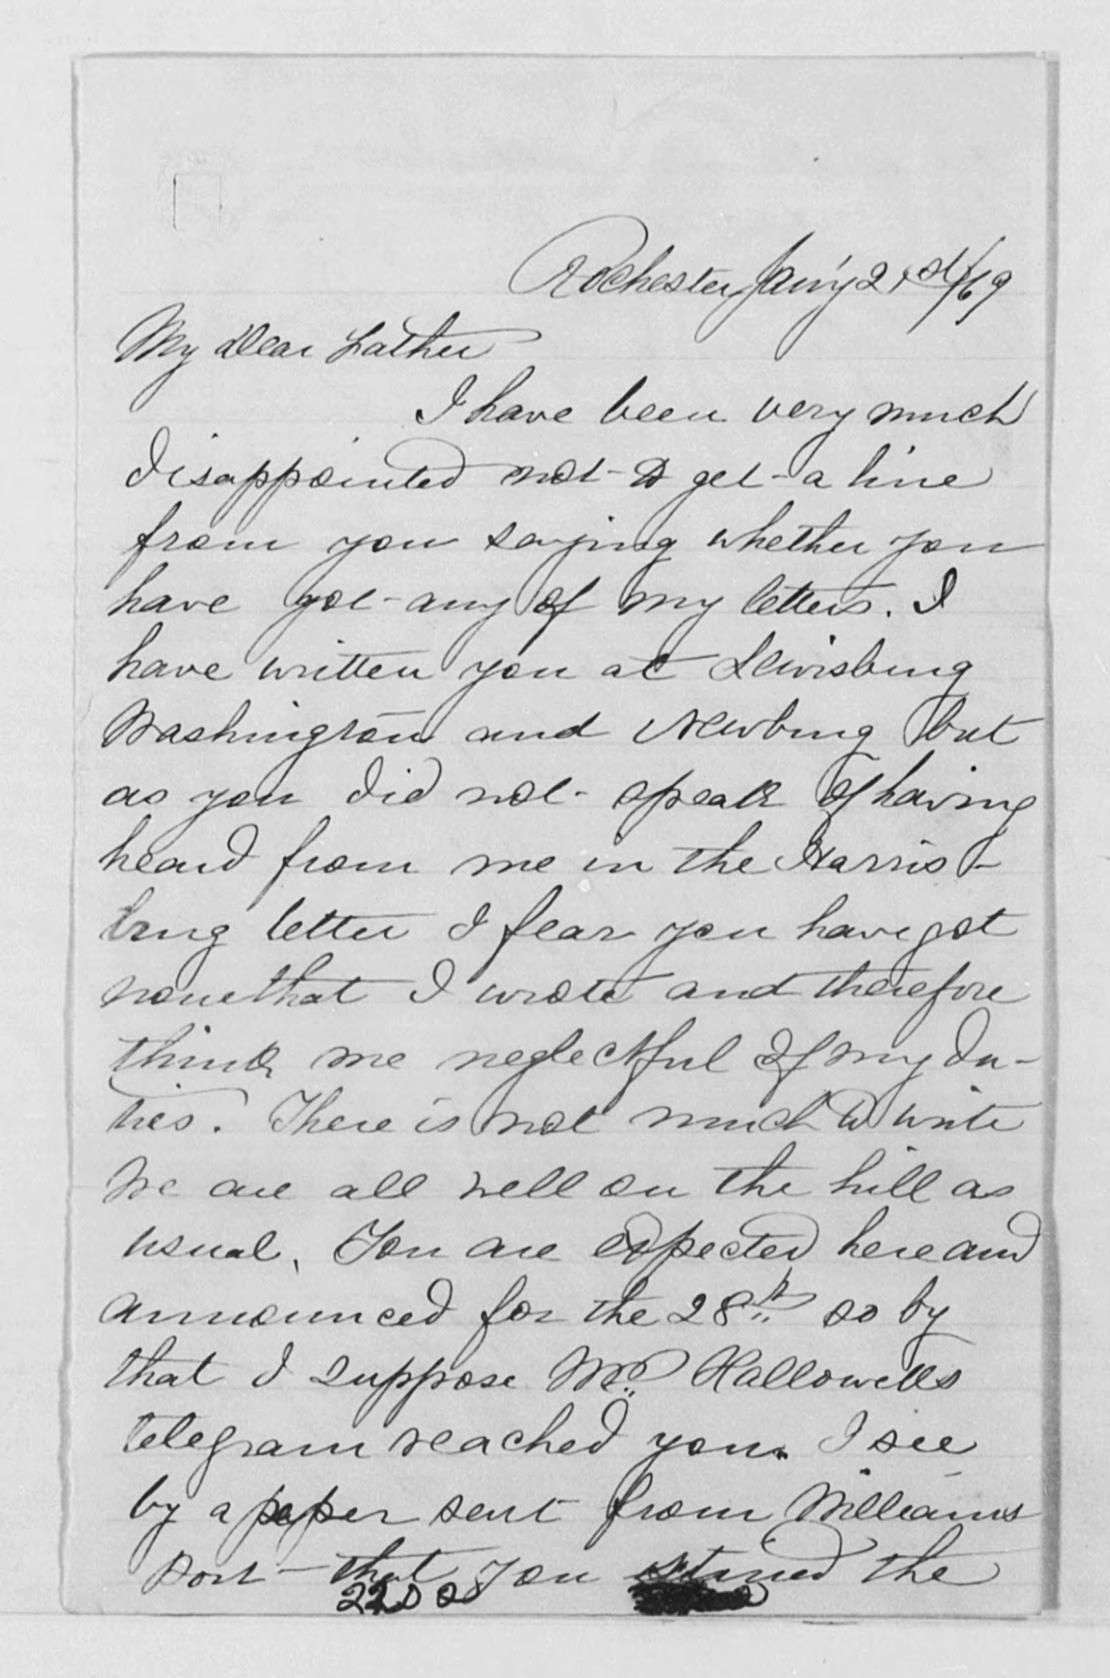 Rochester, Jan'y 21st/69
My Dear Father
I have been very much
disappointed not to get a line
from you saying whether you
have got any of my letters. I
have written you at Lewisburg
Washington and Newburg but
as you did not speak of having
heard from me in the Harris-
burg letter I fear you have got
none that I wrote and therefore
think me neglectful of my du-
ties. There is not much to write
We are all well on the hill as
usual. You are expected here and
announced for the 28th so by
that I suppose Mr. Hallowells
telegram reached you. I see
by a paper sent from Williams
port that you stirred the